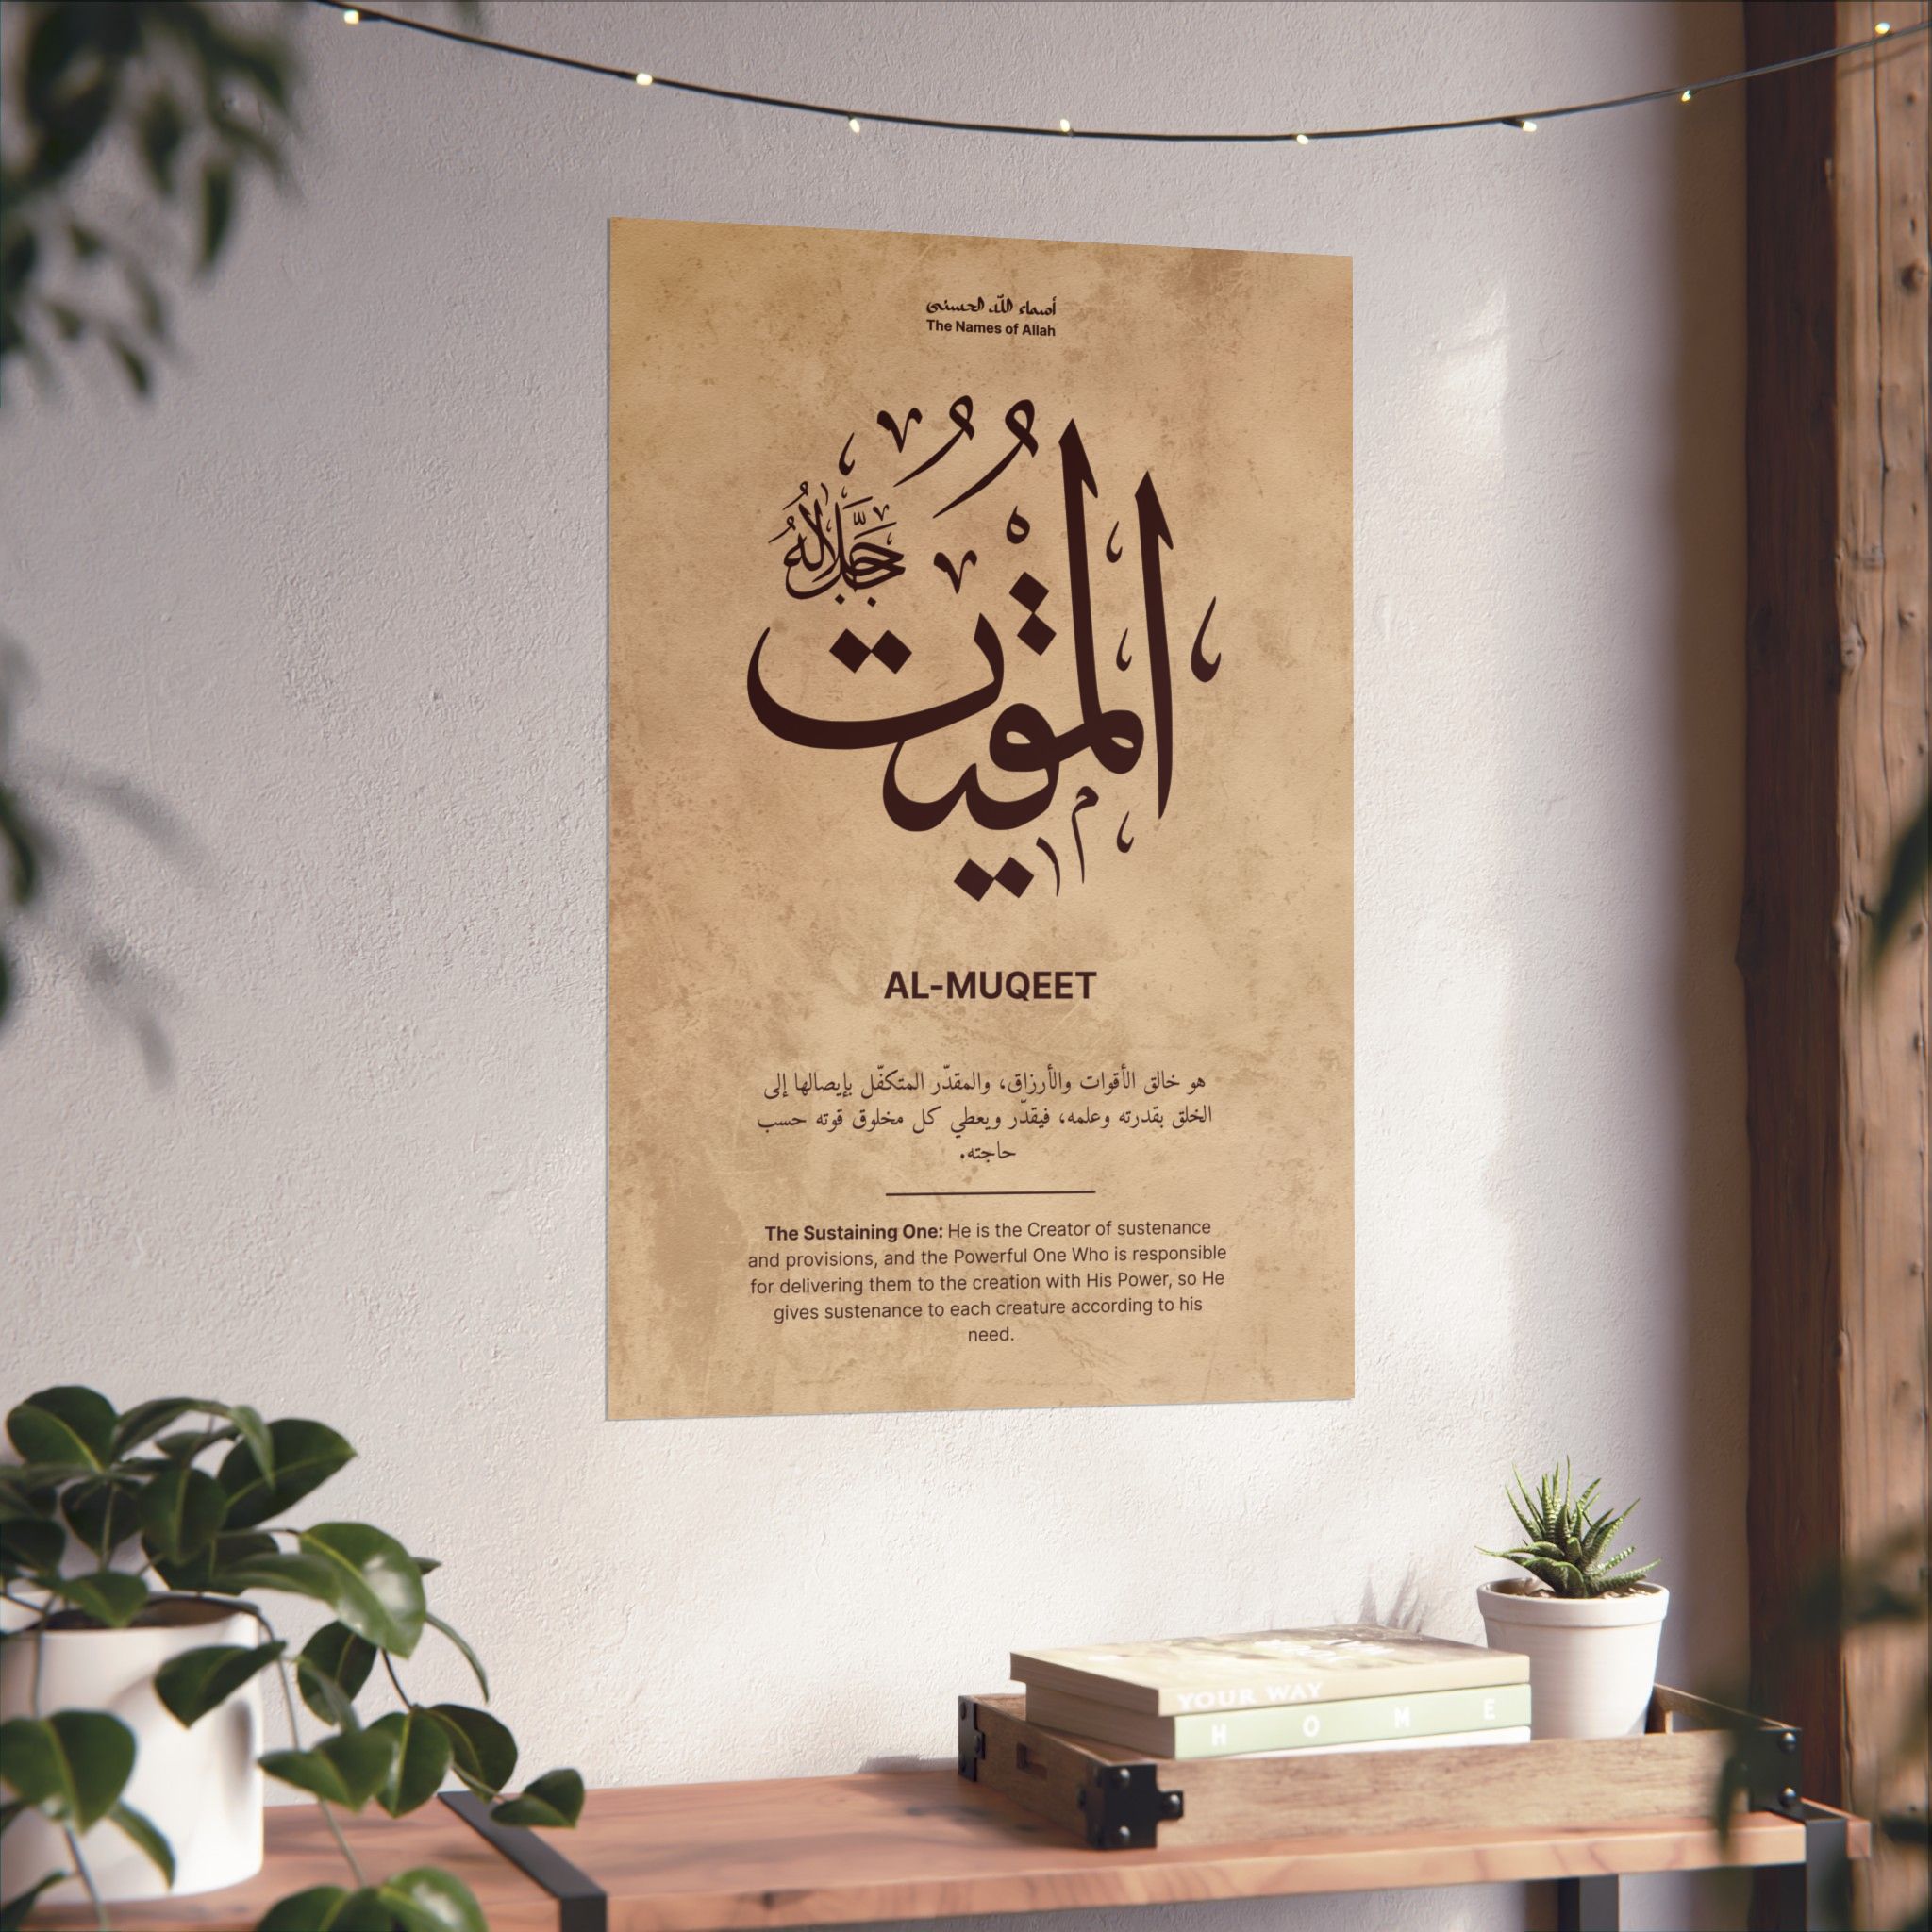 أسماء اللّه الحسنى
The Names of Allah
المُقيتُ
جَلَّ جَلَالُهُ
AL-MUQEET
هو خالق الأقوات والأرزاق، والمقدّر المتكفّل بإيصالها إلى
الخلق بقدرته وعلمه، فيقدّر ويعطي كل مخلوق قوته حسب
حاجته.
The Sustaining One: He is the Creator of sustenance
and provisions, and the Powerful One Who is responsible
for delivering them to the creation with His Power, so He
gives sustenance to each creature according to his
need.
YOUR WAY
HOME